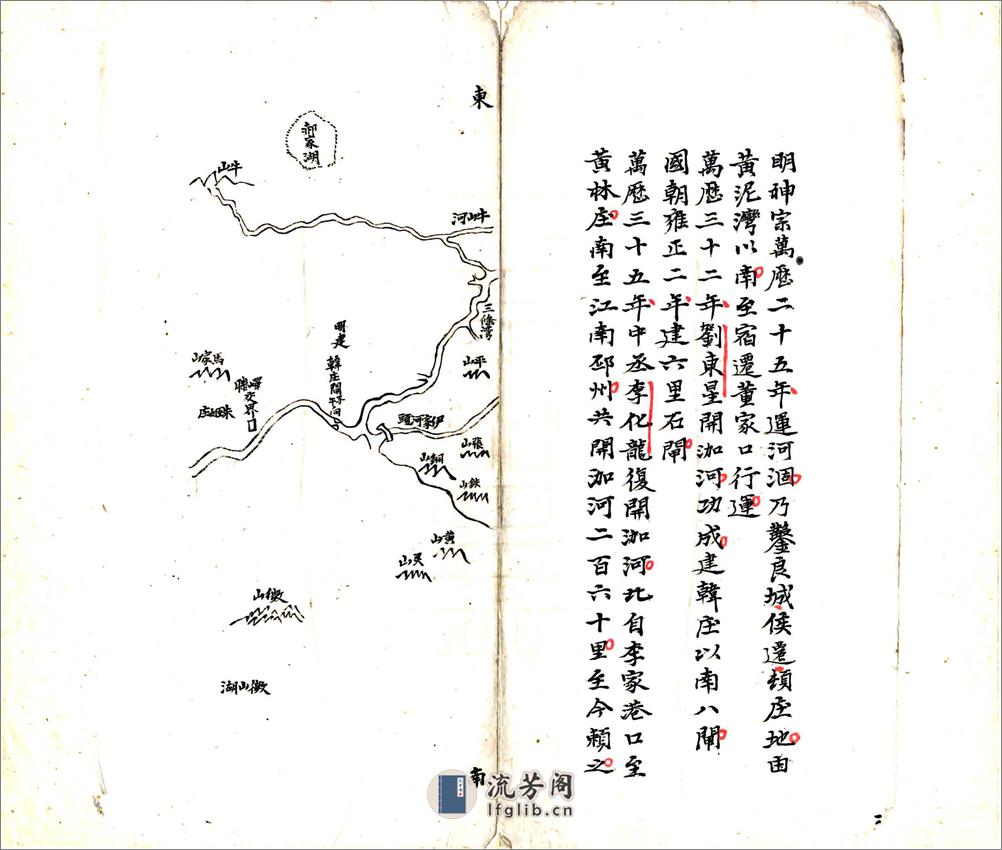 明神宗萬厯二十五年運河涸乃鑿良城侯遷頓庄地由
黃泥灣以南至宿遷董家口行運
萬厯三十二年劉東星開泇河功成建韓庄以南八閘
國朝雍正二年建六里石閘
萬厯三十五年中丞李化龍復開泇河北自李家巷口至
黃林庄南至江南邳州共開泇河二百六十里至今賴之
二
東
郝家湖
牛山
牛山河
三條灣
平山
明建
韓庄閘
馬家山
嶧滕交界
朱姬庄
伊家河頭
張山
銅山
鉄山
黃山
灵山
微山
微山湖
南
流芳阁
lfglib.cn